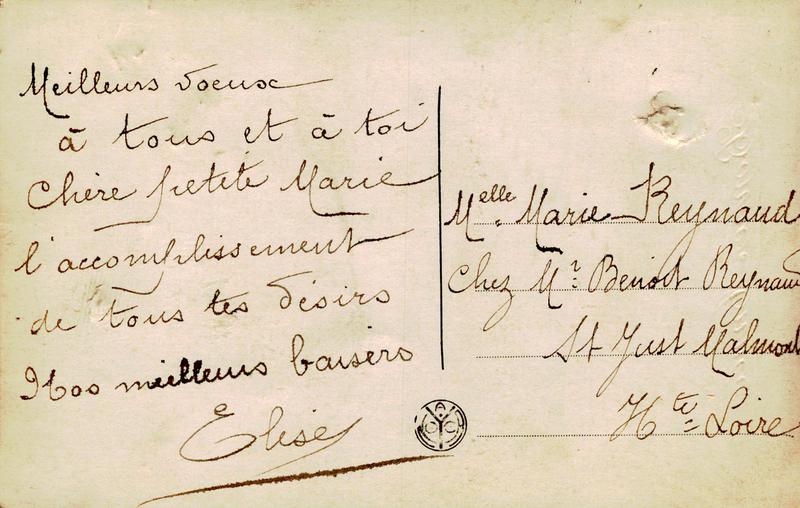 Meilleurs voeux
à tous et à toi
Chère petite Marie
l'accomplissement
de tous tes désirs
Nos meilleurs baisers
Elise
Melle Marie Reynaud
Chez Mr Benoit Reynaud
St Just Malmont
Hte Loire